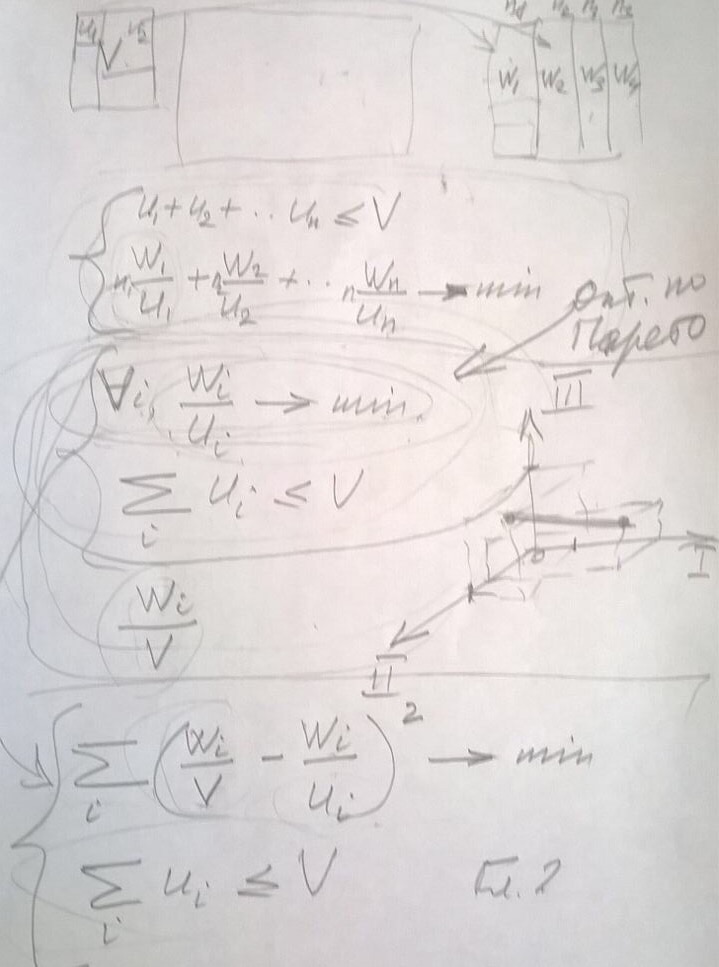 u₁ V u₂
n₁ n₂
W₁ W₂ W₃ W₄
u₁ + u₂ + ·· uₙ ≤ V
n₁ W₁/u₁ + n W₂/u₂ + ·· n Wₙ/uₙ → min
Опт. по
Парето
∀i, Wᵢ/uᵢ → min.
III
∑ᵢ uᵢ ≤ V
I
Wᵢ/V
II
∑ᵢ (Wᵢ/V - Wᵢ/uᵢ)² → min
∑ᵢ uᵢ ≤ V